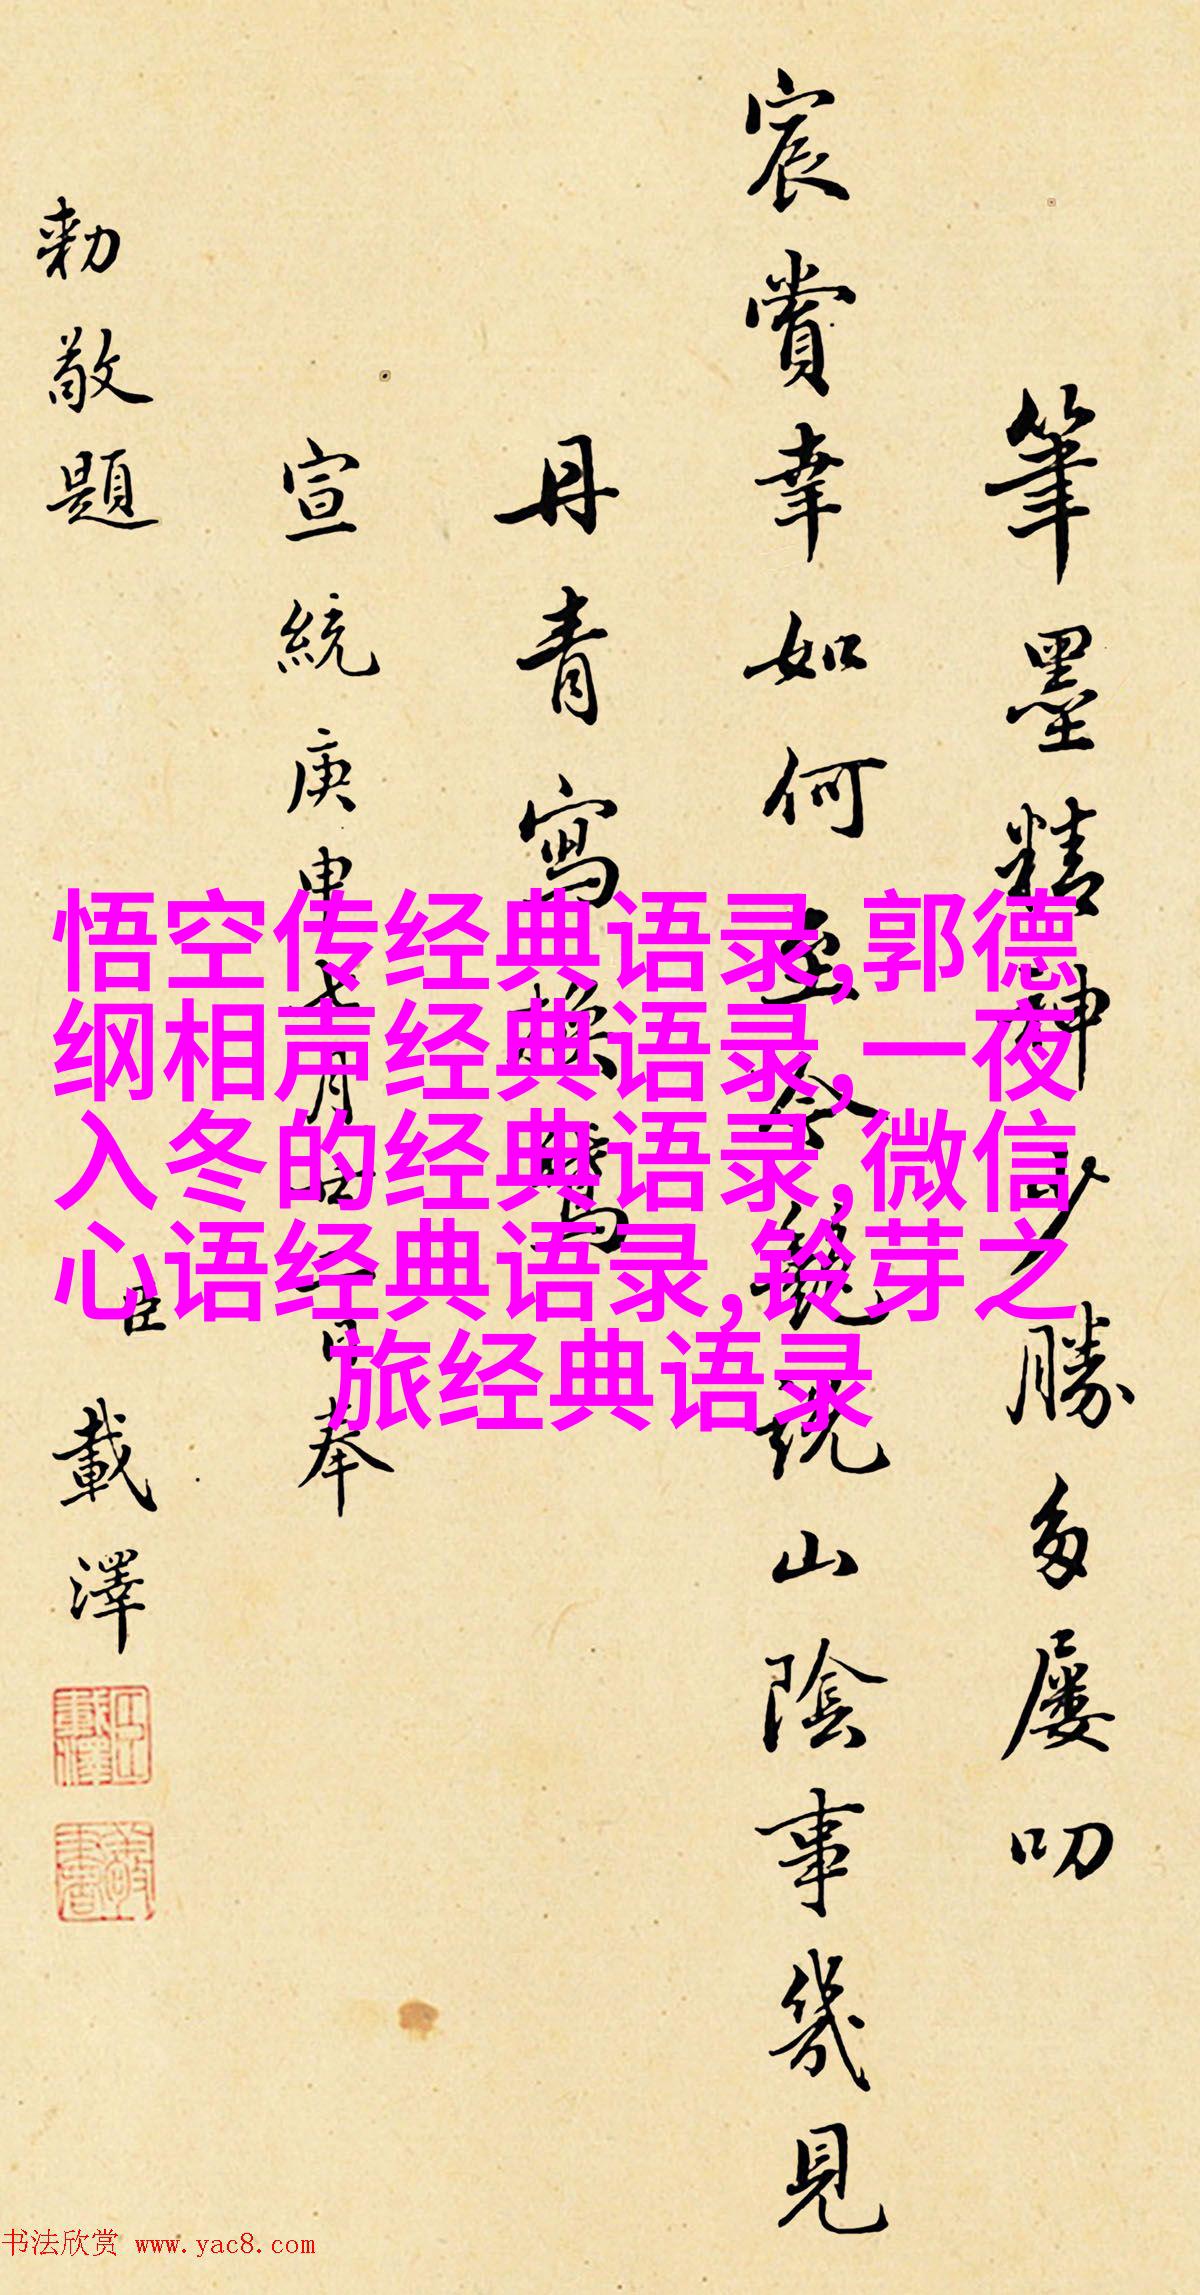 筆墨精神少勝多屢叨
宸賞幸如何至今競説山陰事幾見
丹青寫換鵞
宣統庚申七月古一日奉
勅敬題
臣載澤
悟空传经典语录,郭德
纲相声经典语录,一夜
入冬的经典语录,微信
心语经典语录,铃芽之
旅经典语录
书法欣赏 www.yac8.com